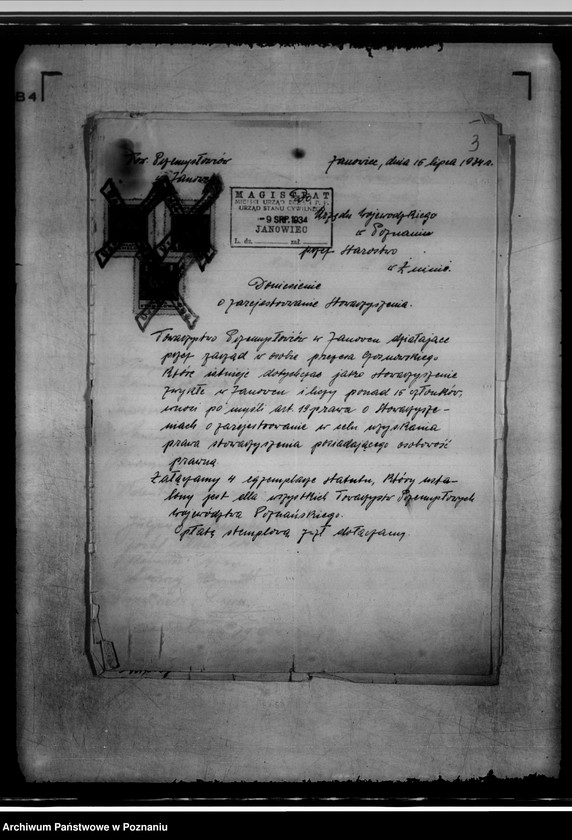 84
3
Tow. Przemysłowców
w Janowcu
Janowiec, dnia 15 lipca 1934 r.
MAGISTRAT
URZĄD STANU CYWILNEGO
-9 SRP. 1934
JANOWIEC
L. dz. zał.
Urzędu Wojewódzkiego
w Poznaniu
przez Starostwo
w Żninie.
Doniesienie
o zarejestrowanie Stowarzyszenia.
Towarzystwo Przemysłowców w Janowcu działające
przez zarząd w osobie prezesa
które istnieje dotychczas jako stowarzyszenie
zwykłe w Janowcu i liczy ponad 15 członków,
wnosi po myśli art. 19 prawa o Stowarzysze-
niach o zarejestrowanie w celu uzyskania
prawa stowarzyszenia posiadającego osobowość
prawną.
Załączamy 4 egzemplarze statutu, który usta-
lony jest dla wszystkich Towarzystw Przemysłowych
województwa Poznańskiego.
Opłatę stemplową zł dołączamy.
Archiwum Państwowe w Poznaniu